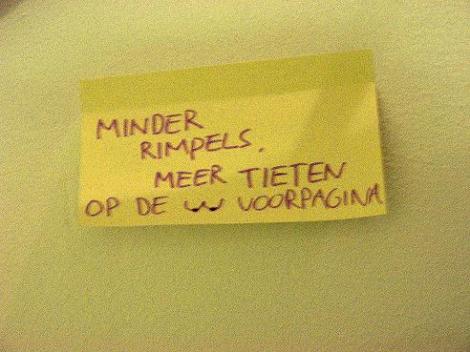 MINDER
RIMPELS.
MEER TIETEN
OP DE VOORPAGINA